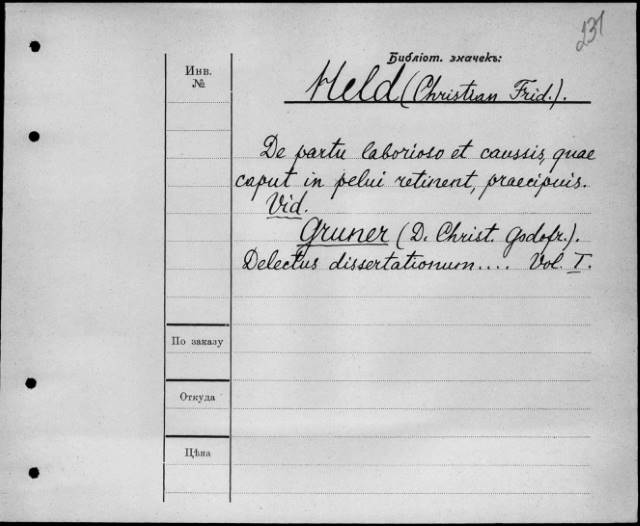 237
Библіот. значекъ:
Инв.
№
Held (Christian Frid.).
De partu laborioso et caussis, quae
caput in pelui retinent, praecipuis.
Vid.
Gruner (D. Christ. Godofr.).
Delectus dissertationum.... Vol. I.
По заказу
Откуда
Цѣна